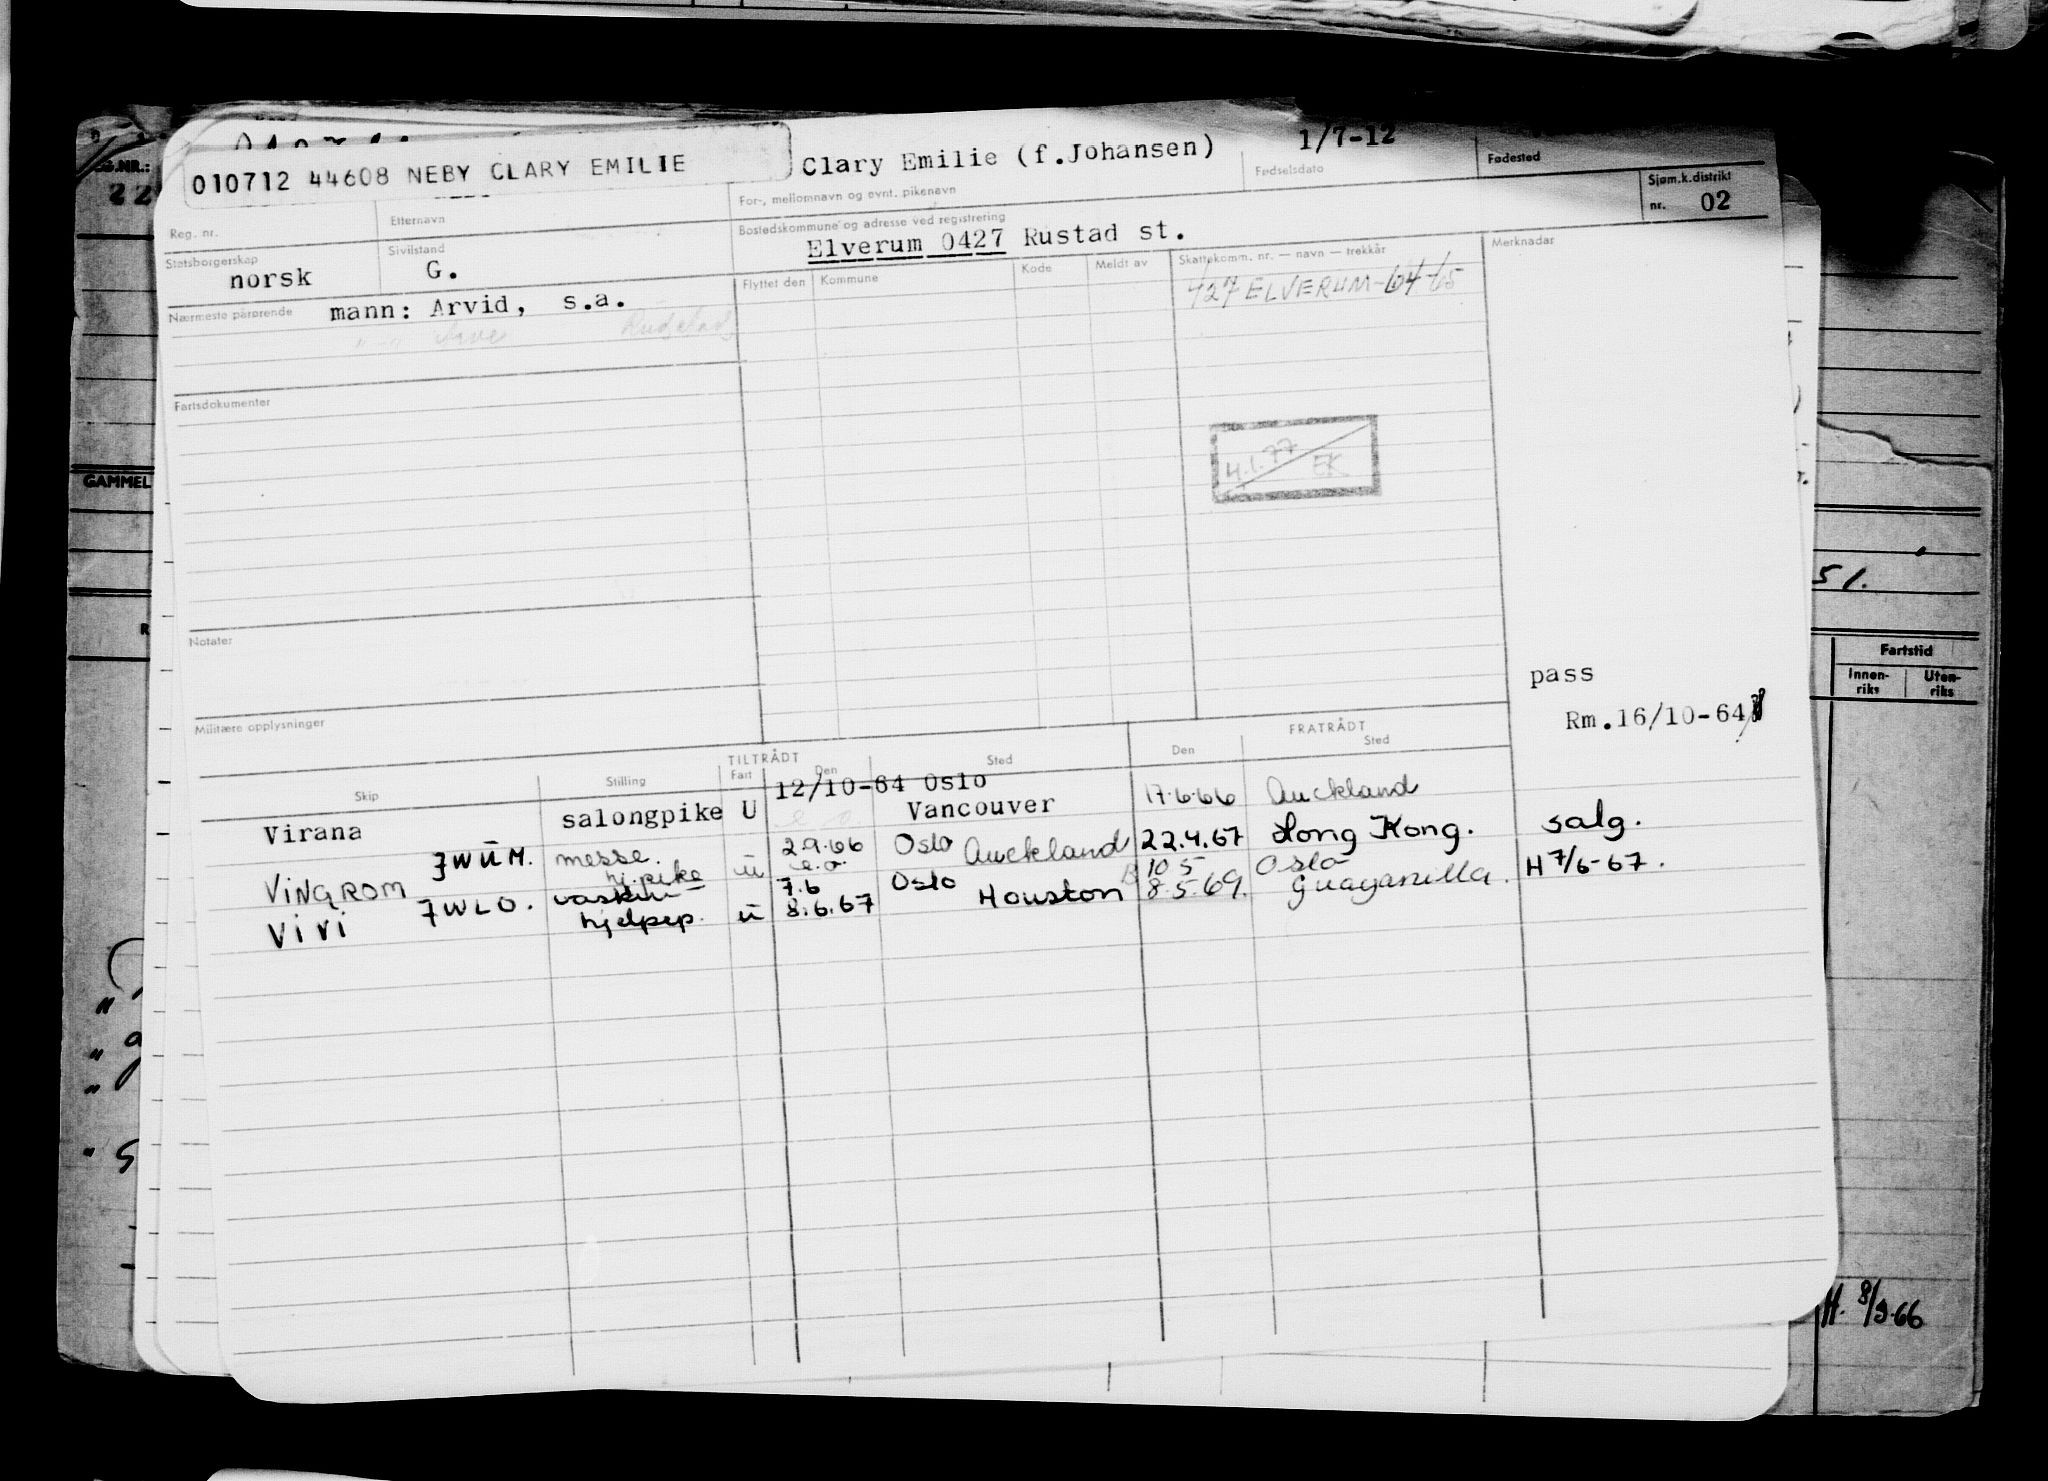 010712 44608 NEBY CLARY EMILIE
Clary Emilie (f.Johansen)
1/7-12
Fødselsdato
Fødested
Reg. nr.
Etternavn
For-, mellomnavn og evnt. pikenavn
Sjøm.k.distrikt
nr. 02
Statsborgerskap
norsk
Sivilstand
G.
Bostedskommune og adresse ved registrering
Elverum 0427 Rustad st.
Nærmeste pårørende
mann: Arvid, s.a.
Flyttet den
Kommune
Kode
Meldt av
Skattekomm. nr. — navn — trekkår
427 ELVERUM-64-65
Merknader
Fartsdokumenter
4.1.77
EK
Notater
Militære opplysninger
pass
Rm.16/10-64
TILTRÅDT
FRATRÅDT
Skip
Stilling
Fart
Den
Sted
Den
Sted
Virana salongpike U 12/10-64 Oslo Vancouver 17.6.66 Auckland
VINGROM JWUM. messe. hj.pike u 2.9.66 Oslo Auckland 22.4.67 Hong Kong. salg.
ViVi JWLO. hjelpep. u 7.6 8.6.67 Oslo Houston 10.5 8.5.69. Oslo Guayanilla. H 7/6-67.
REG.NR.:
22
GAMMEL
51.
Fartstid
Innen-
riks
Uten-
riks
H. 8/9.66